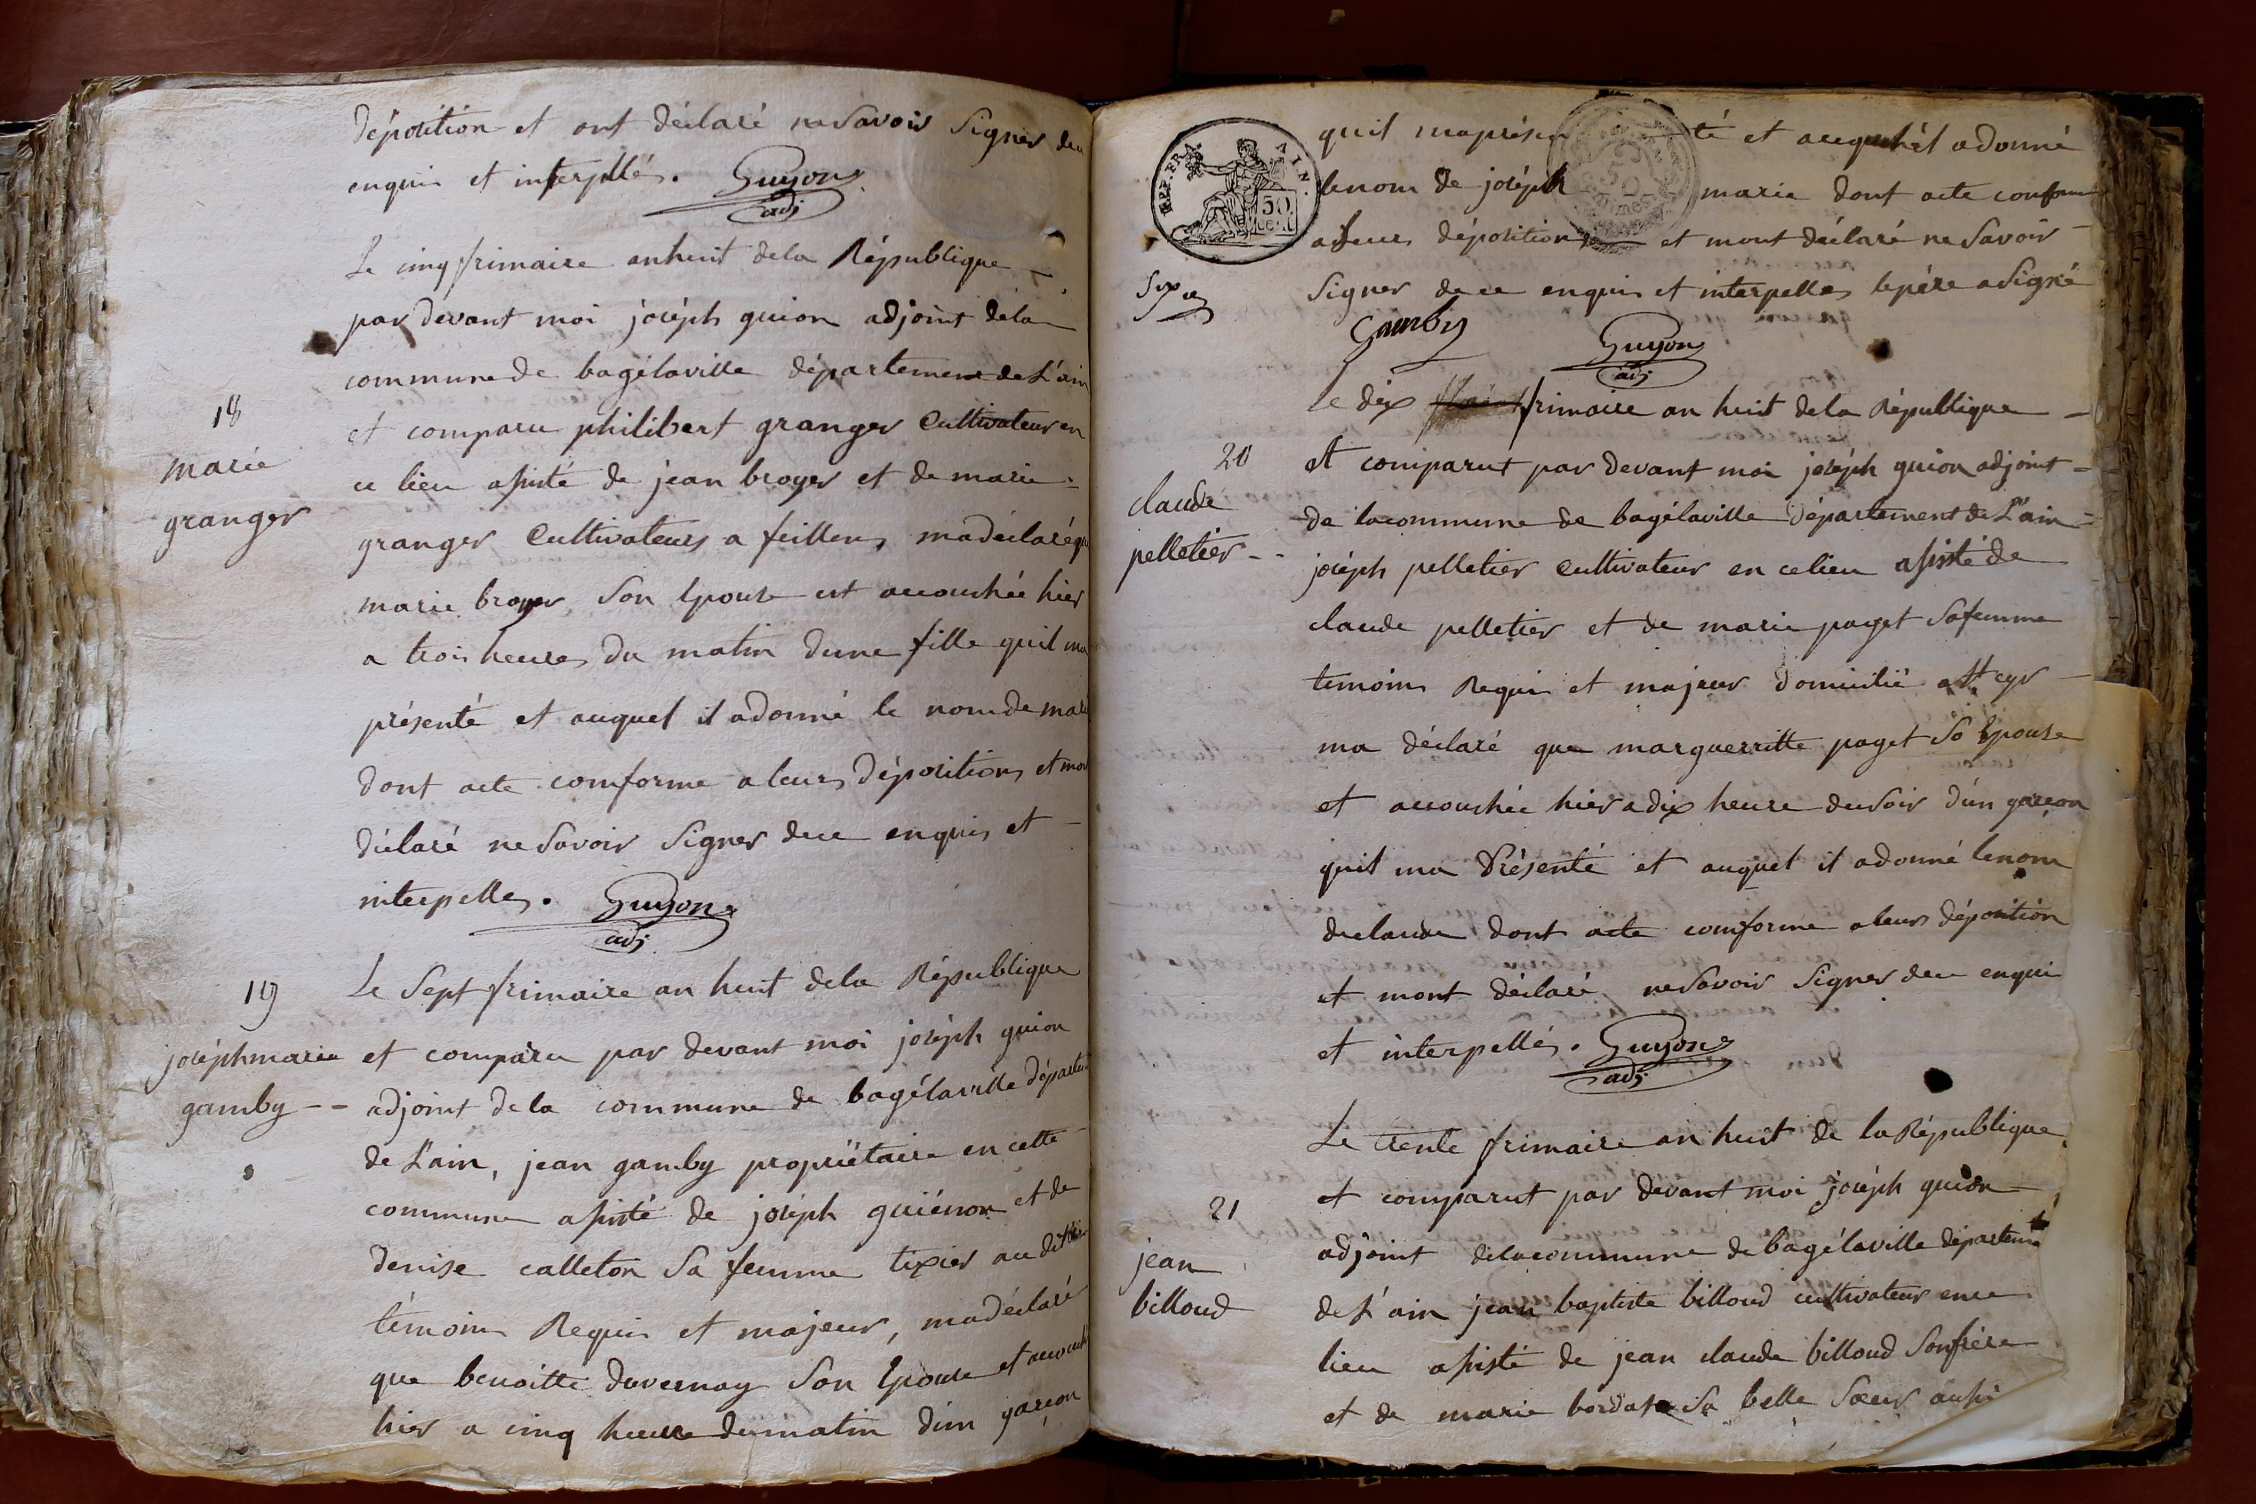 déposition et ont déclaré ne savoir signer de ce
enquis et interpellés. Guyon
adj
Le cinq frimaire an huit de la République
par devant moi joséph guion adjoint de la
commune de bagélaville département de L'ain
18
marie
granger
et comparu philibert granger Cultivateur en
ce lieu assisté de jean broyer et de marie
granger Cultivateurs a feillens, ma déclaré que
marie broyer son Epouse est accouchée hier
a trois heures du matin dune fille quil ma
présenté et auquel il a donné le nom de marie
dont acte comforme a leurs dépositions et mont
déclaré ne savoir signer de ce enquis et
interpelles. Guyon
adj
19
joséph marie
gamby
Le sept frimaire an huit de la République
et comparu par devant moi joséph guion
adjoint de la commune de bagélaville départe
de L'ain, jean gamby propriétaire en cette
commune assisté de joséph guiénon et de
denise calleton sa femme tixier au dit lieu
témoins Requis et majeur, ma déclaré
que benoitte duvernay son Epouse et accouché
hier a cinq heure du matin d'un garçon
REP. FRA AIN.
50
CENT
quil maprésen té et auquel il a donné
le nom de joséph marie dont acte conforme
a leurs déposition et mont déclaré ne savoir
signer de ce enquis et interpelles le père a signé
Gamby Guyon
adj
20
claude
pelletier
Le dix frimaire an huit de la République
et comparut par devant moi joséph guion adjoint
de la commune de bagélaville département de L'ain
joséph pelletier Cultivateur en ce lieu assisté de
claude pelletier et de marie paget sa femme
temoins Requis et majeur domicilié a St cyr
ma déclaré que marguerritte paget so Epouse
et accouchée hier a dix heure du soir d'un garçon
quil ma Présenté et auquel il a donné le nom
de claude dont acte comforme a leurs déposition
et mont déclaré ne savoir signer de ce enqui
et interpellés. Guyon
adj
21
jean
billoud
Le trente frimaire an huit de la République
et comparut par devant moi joséph guion
adjoint de la commune de bagélaville département
de L'ain jean baptiste billoud cultivateur en ce
lieu assisté de jean claude billoud son frère
et de marie bordat sa belle sœur aussi